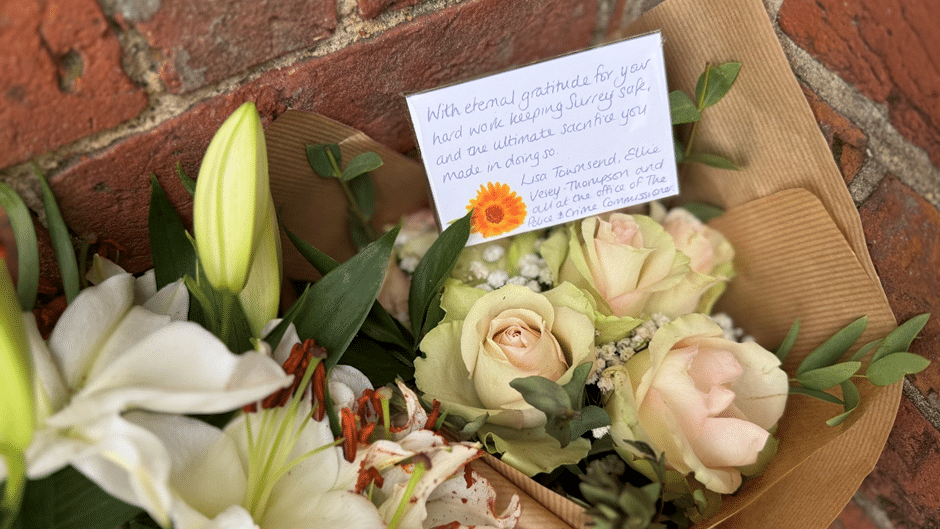 With eternal gratitude for your
hard work keeping Surrey safe,
and the ultimate sacrifice you
made in doing so.
Lisa Townsend, Ellie
Vesey-Thompson and
all at the office of The
Police & Crime Commissioner